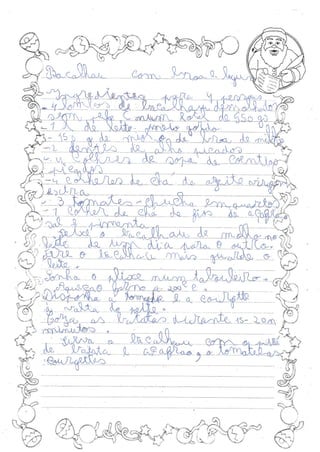 Bacalhau com broa e legum
Ingredientes para 4 pessoas
- 4 lombos de bacalhau demolhado
sem pele (num total de 550 gs
- 1 l de leite meio gordo
- 150 g de miolo de broa de milho
- 2 dentes de alho picados
- 4 colheres de sopa de coentros
picados
- 4 colheres de chá de azeite virgem
extra
- 3 tomates-chucha em quartos
- 1 colher de chá de fios de açafrão
sal e pimenta
Deixe o bacalhau de molho no
leite de um dia para o outro.
Retire o bacalhau mas guarde o
leite.
Ponha o peixe num tabuleiro.
Aqueça o forno a 200º C
Disponha a tomate e a courgette
à volta do peixe.
Coza as batatas durante 15-20 m
minutos.
Sirva o bacalhau com o puré
de batata e açafrão, o tomate e as
courgettes